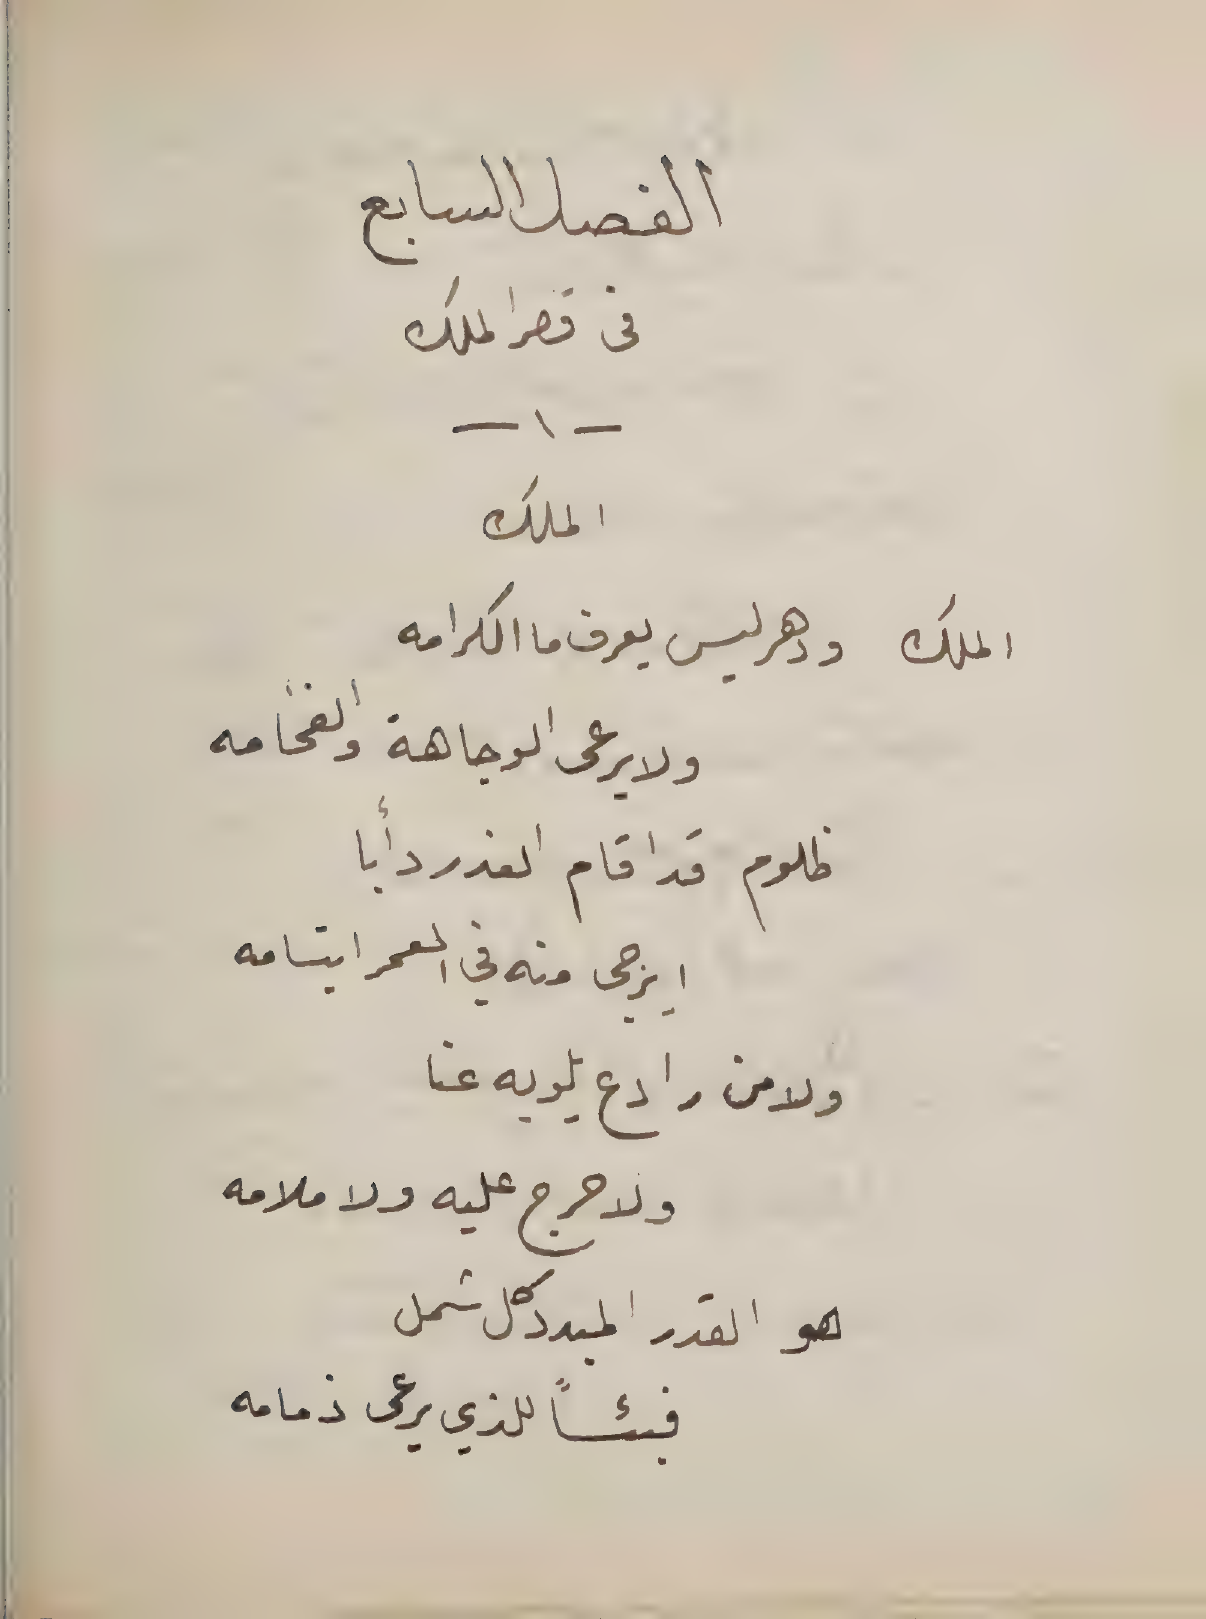 الفصل السابع
فى قصر الملك
— ١ —
الملك
الملك ودهر ليس يعرف ما الكرامه
ولا يرعى الوجاهة والفخامه
ظلوم قد اقام الغدر دأبا
ايزجى منه في العمر ابتسامه
ولا من رادع يلويه عنا
ولا حرج عليه ولا ملامه
هو القدر المبدد كل شمل
فبئساً للذي يرعى ذمامه